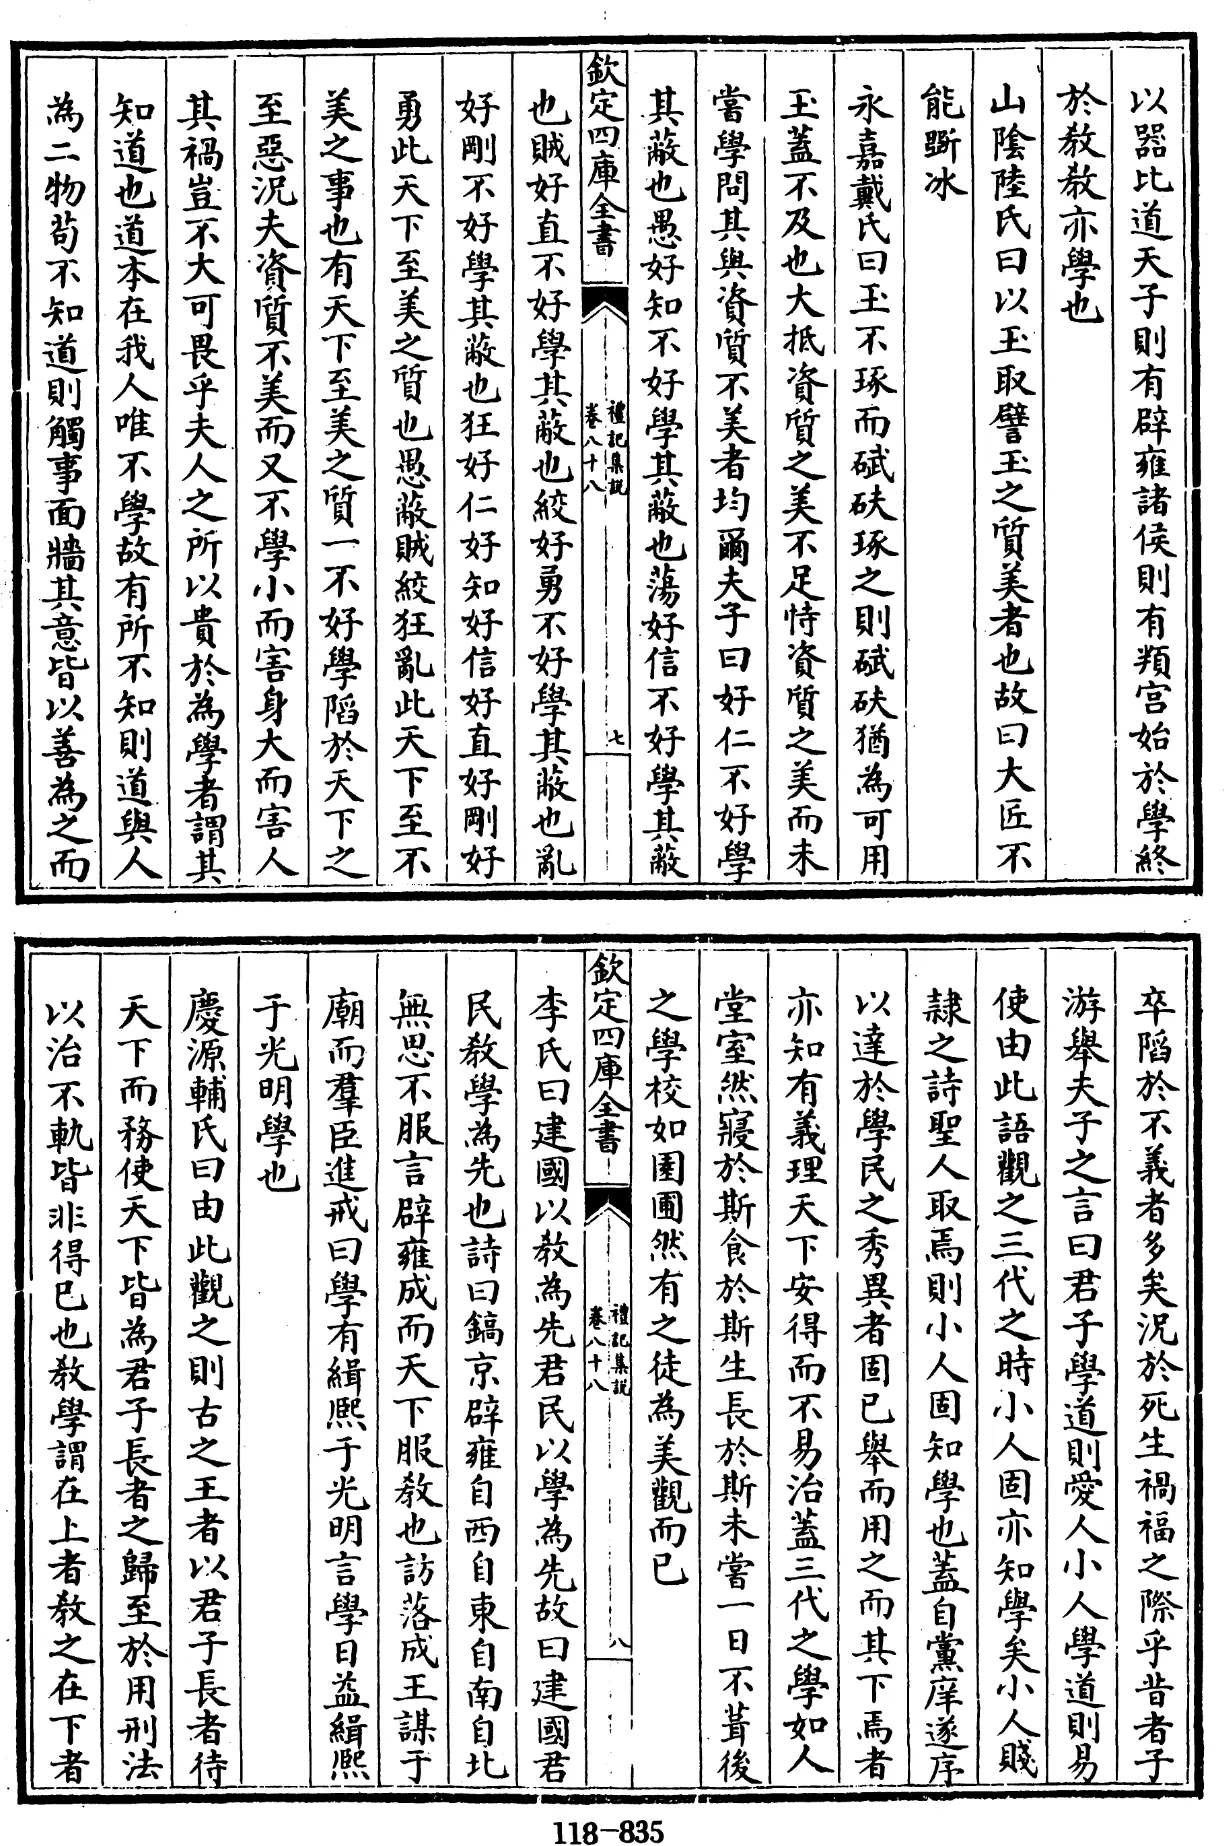 以器比道天子則有辟雍諸侯則有頖宫始於學終
於敎敎亦學也
山隂陸氏曰以玉取譬玉之質美者也故曰大匠不
能斵冰
永嘉戴氏曰玉不琢而碔砆琢之則碔砆猶為可用
玉蓋不及也大抵資質之美不足恃資質之美而未
嘗學問其與資質不美者均爾夫子曰好仁不好學
其蔽也愚好知不好學其蔽也蕩好信不好學其蔽
欽定四庫全書
禮記集説
卷八十八
七
也賊好直不好學其蔽也絞好勇不好學其蔽也亂
好剛不好學其蔽也狂好仁好知好信好直好剛好
勇此天下至美之質也愚蔽賊絞狂亂此天下至不
美之事也有天下至美之質一不好學陷於天下之
至惡況夫資質不美而又不學小而害身大而害人
其禍豈不大可畏乎夫人之所以貴於為學者謂其
知道也道本在我人唯不學故有所不知則道與人
為二物茍不知道則觸事面牆其意皆以善為之而
卒陷於不義者多矣況於死生禍福之際乎昔者子
游舉夫子之言曰君子學道則愛人小人學道則易
使由此語觀之三代之時小人固亦知學矣小人賤
隸之詩聖人取焉則小人固知學也蓋自黨庠遂序
以達於學民之秀異者固已舉而用之而其下焉者
亦知有義理天下安得而不易治蓋三代之學如人
堂室然寢於斯食於斯生長於斯未嘗一日不葺後
之學校如園圃然有之徒為美觀而已
欽定四庫全書
禮記集説
卷八十八
八
李氏曰建國以敎為先君民以學為先故曰建國君
民敎學為先也詩曰鎬京辟雍自西自東自南自北
無思不服言辟雍成而天下服敎也訪落成王謀于
廟而羣臣進戒曰學有緝熙于光明言學日益緝熙
于光明學也
慶源輔氏曰由此觀之則古之王者以君子長者待
天下而務使天下皆為君子長者之歸至於用刑法
以治不軌皆非得已也敎學謂在上者敎之在下者
118-835